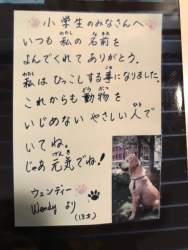 小学生のみなさんへ
いつも私の名前を
よんでくれてありがとう。
私はひっこしする事になりました。
これからも動物を
いじめないやさしい人で
いてね。
じゃあ元気でね!
ウェンディー
Wendy より
(13才)